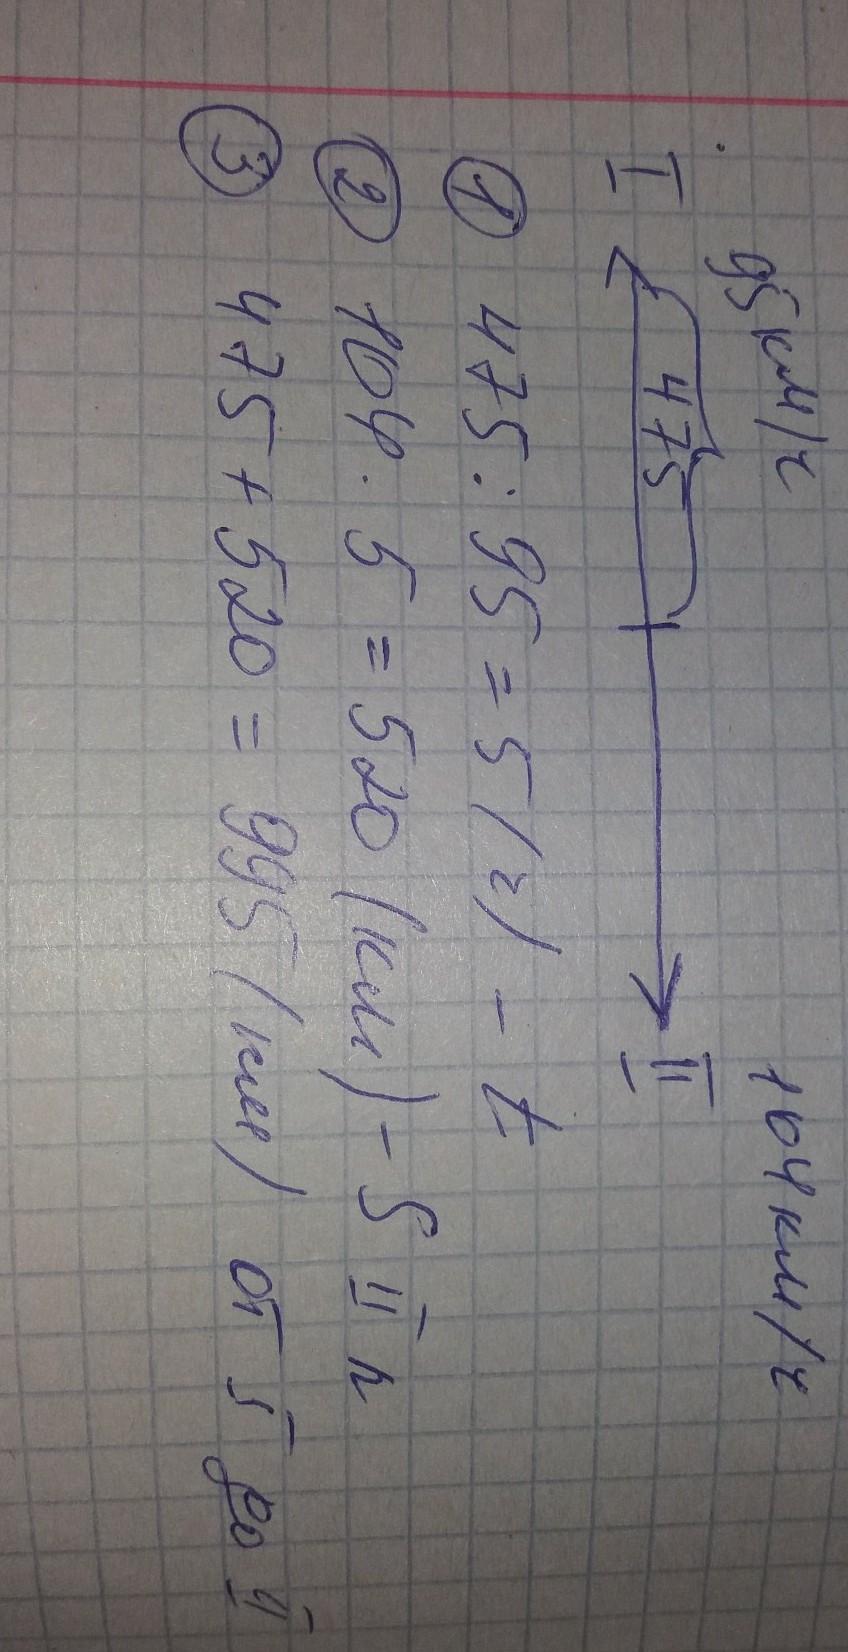 95 км/ч 104 км/ч
I 475 II
① 475 : 95 = 5 (ч) - t
② 104 · 5 = 520 (км) - S II п
③ 475 + 520 = 995 (км) от I до II